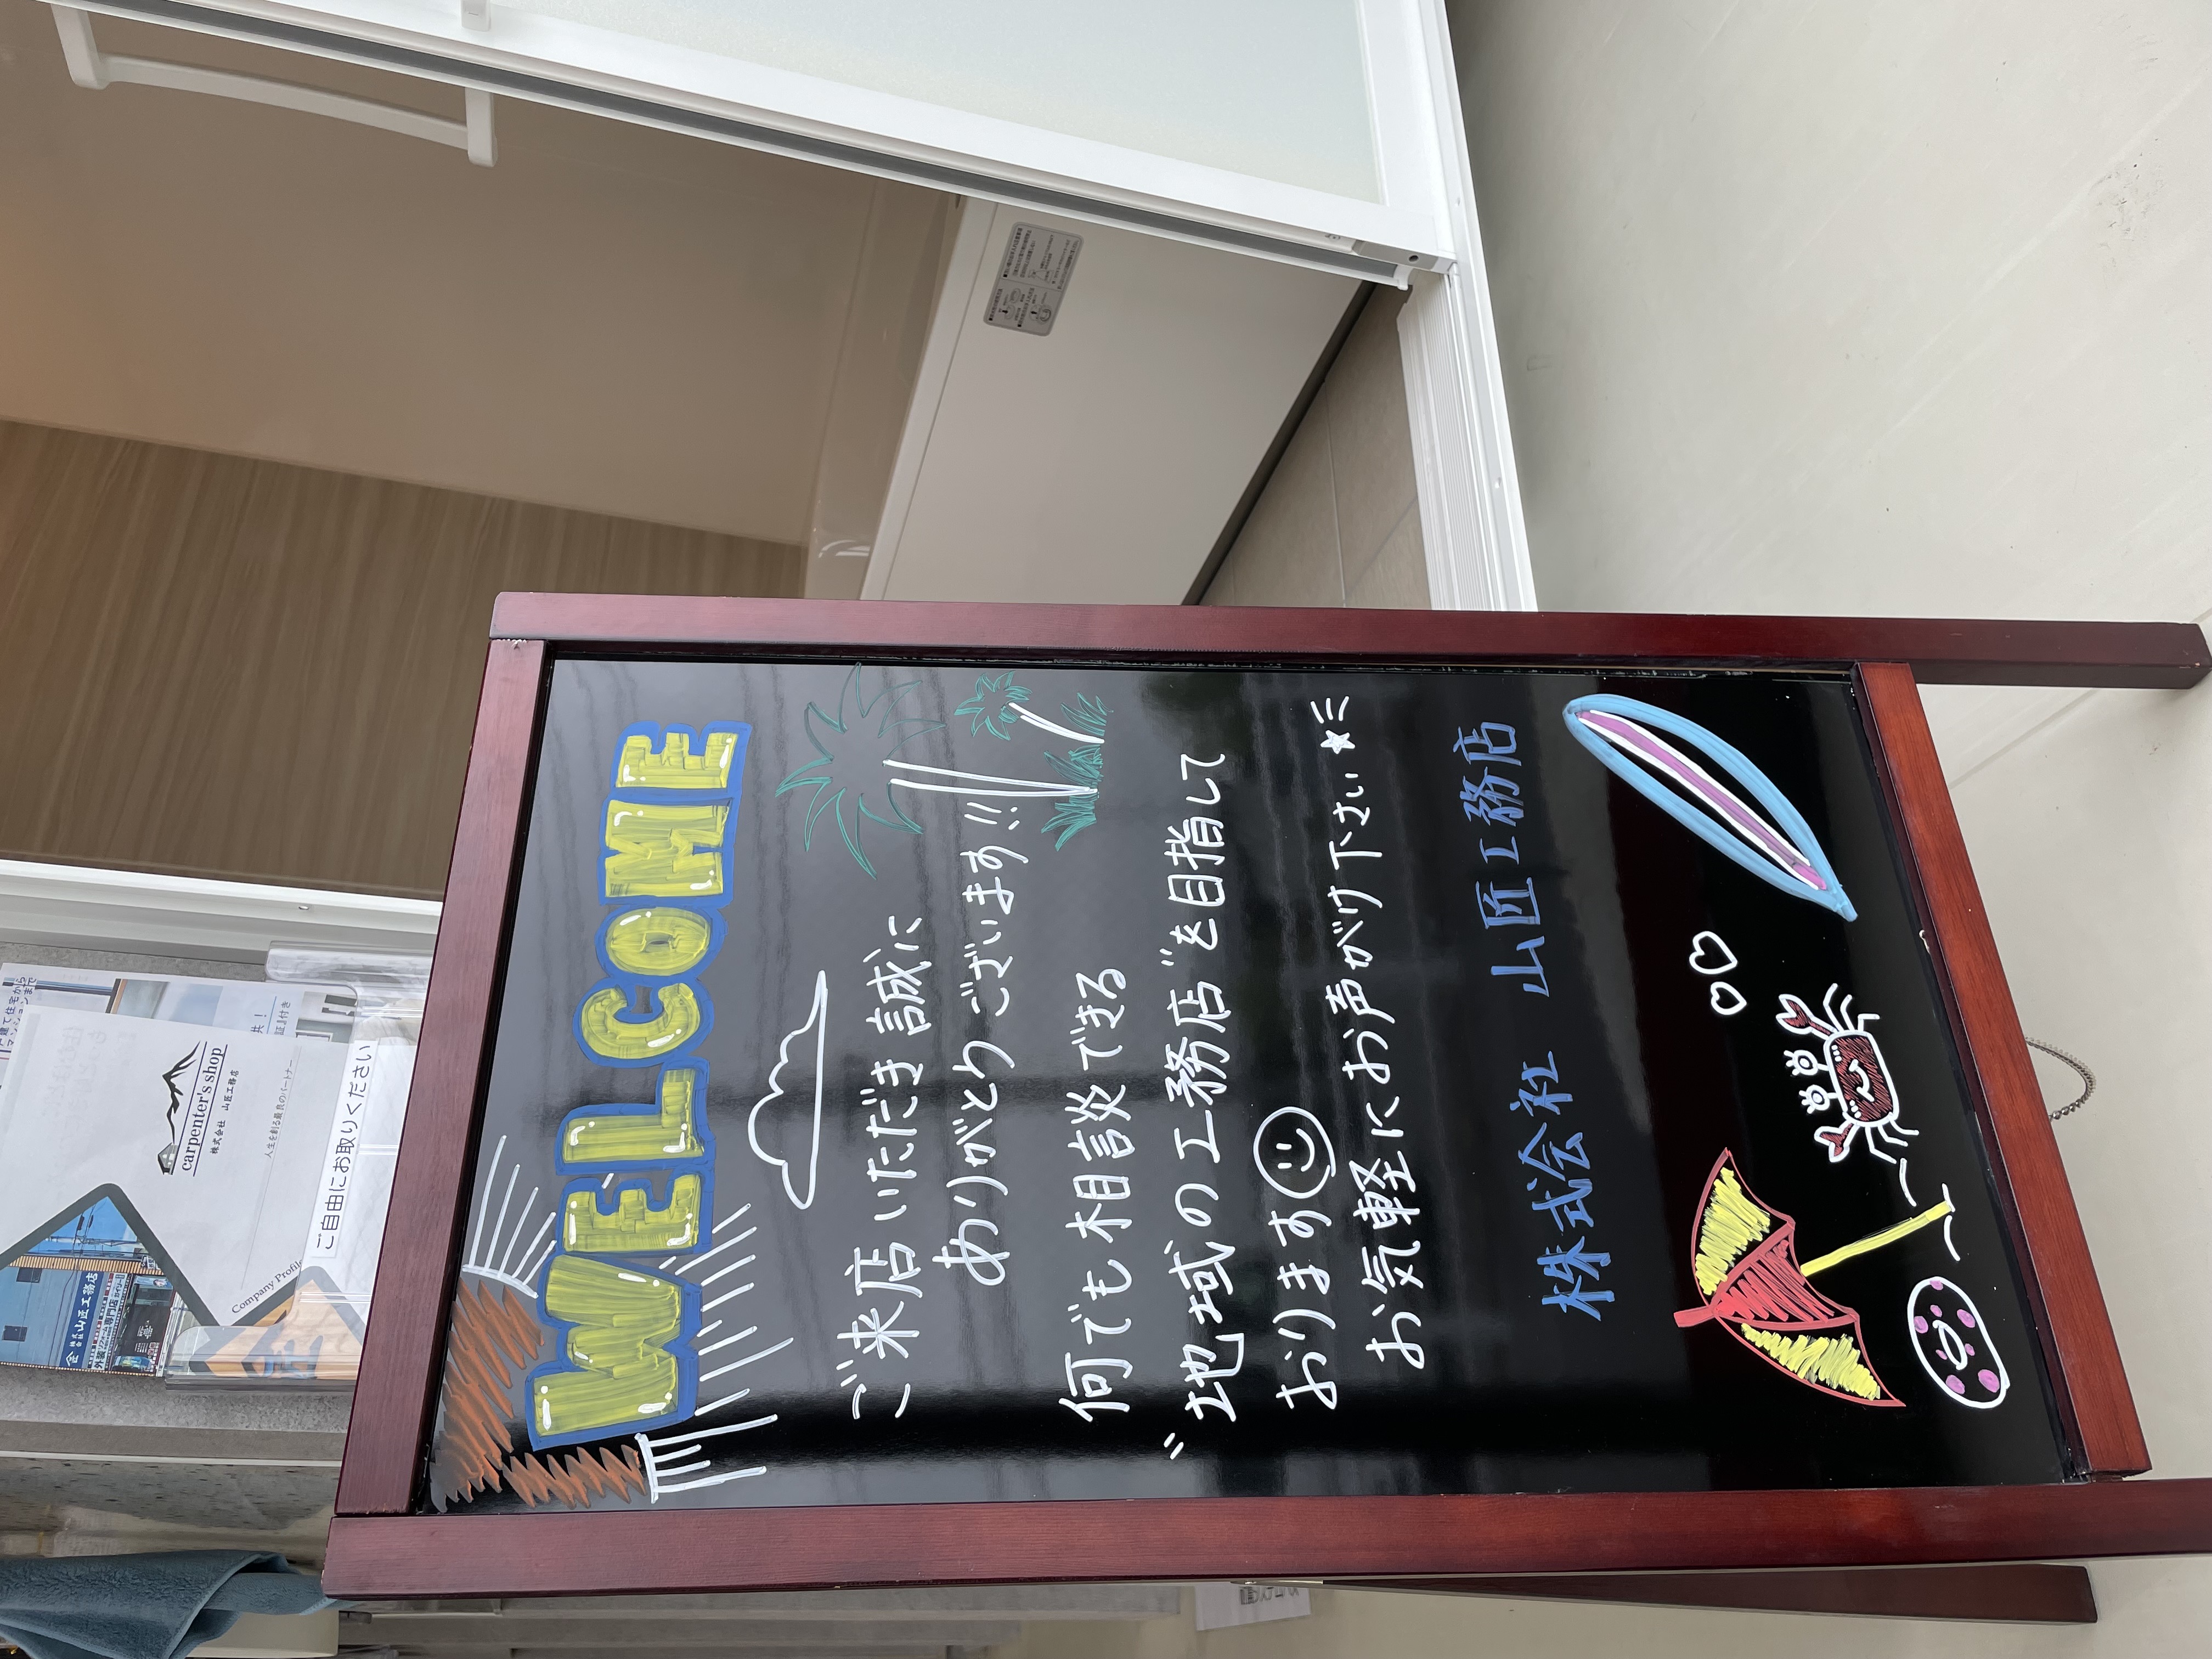 WELCOME
ご来店いただき誠に
ありがとうございます!!!
何でも相談できる
"地域の工務店"を目指して
おります
お気軽にお声がけ下さい
株式会社 山匠工務店
carpenter's shop
株式会社 山匠工務店
人生を創る最良のパートナー
Company Profile
ご自由にお取りください
山匠工務店
戸建て住宅から
マンションまで